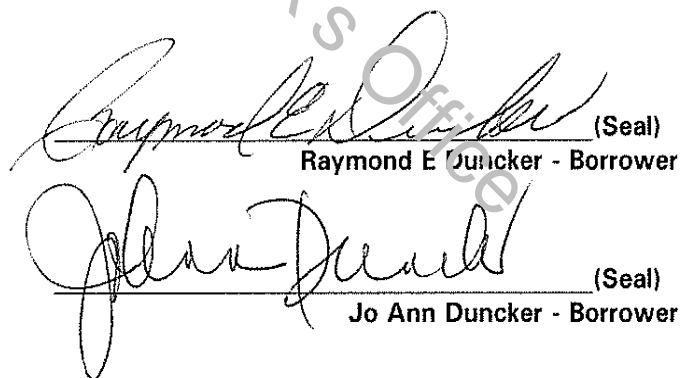 's Office
Raymond E Duncker (Seal)
Raymond E Duncker - Borrower
Jo Ann Duncker (Seal)
Jo Ann Duncker - Borrower